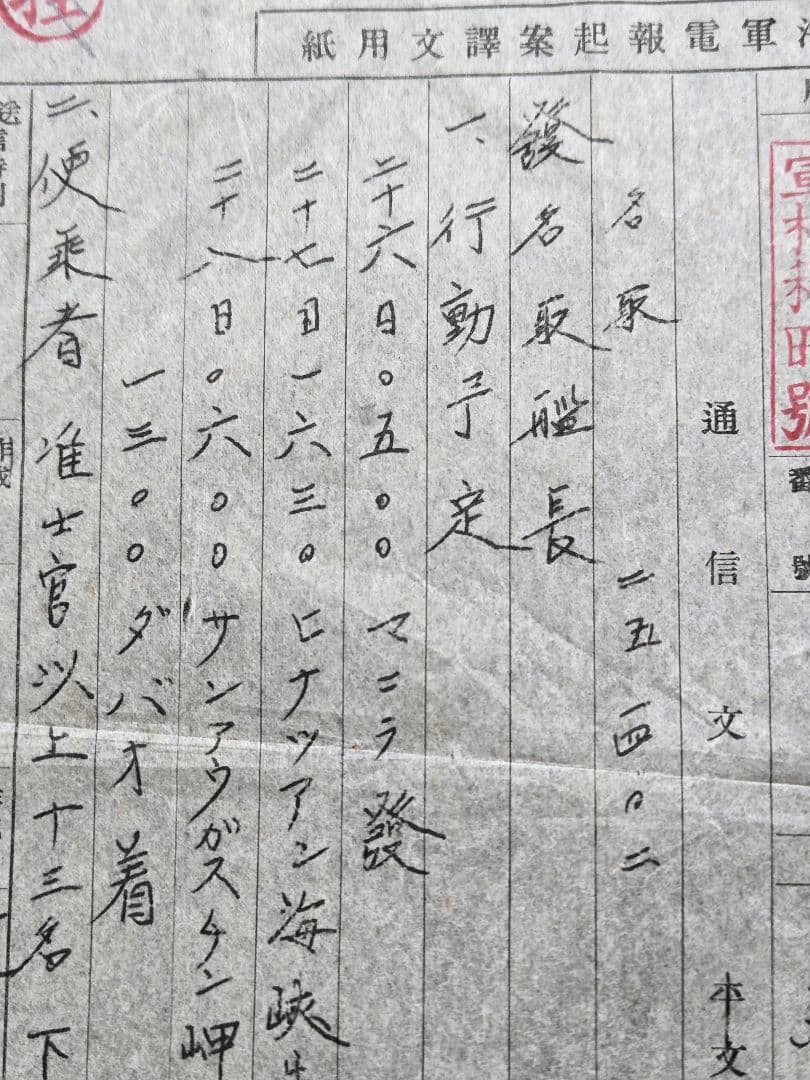 軍電報起案譯文用紙
軍機
號
通信文
本文
名取 二五一四〇二
發名取艦長
一、行動予定
二十六日〇五〇〇マニラ發
二十七日一六三〇ヒナツアン海峡
二十八日〇六〇〇サンアウガスチン岬
一三〇〇ダバオ着
二、便乘者准士官以上十三名下